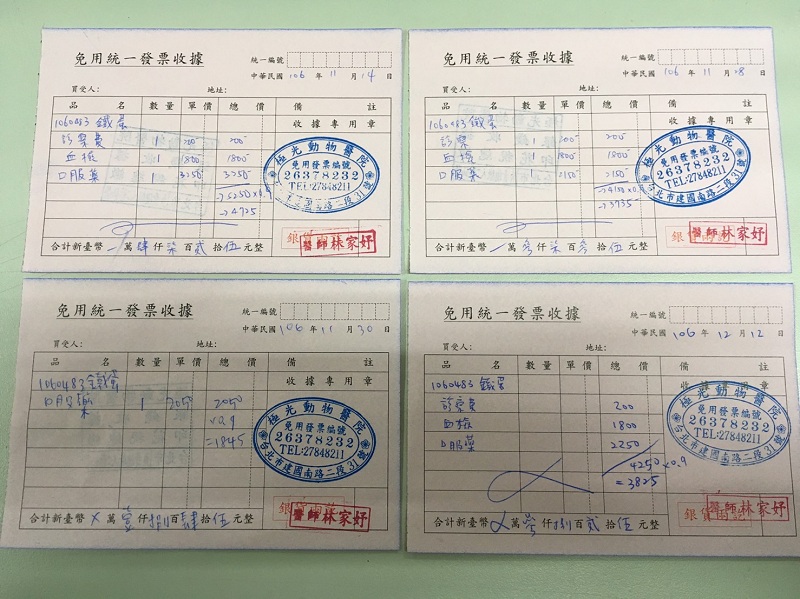 免用統一發票收據
統一編號
中華民國 106 年 11 月 14 日
買受人： 地址：
品 名 數量 單價 總 價 備 註
收據專用章
1060483 鐵蛋
診察費 1 200 200
血檢 1 1800 1800
口服藥 1 3250 3250
→5250×0.9
→4725
極光動物醫院
免用發票編號
26378232
TEL:27848211
醫師林家妤
合計新臺幣 萬肆仟柒百貳拾伍元整
免用統一發票收據
統一編號
中華民國 106 年 11 月 28 日
買受人： 地址：
品 名 數量 單價 總 價 備 註
收據專用章
1060483 鐵蛋
診察費 200 200
血檢 1800 1800
口服藥 2150 2150
→4150×0.9
→3735
極光動物醫院
免用發票編號
26378232
TEL:27848211
台北市建國南路二段31號
醫師林家妤
合計新臺幣 萬參仟柒百參拾伍元整
免用統一發票收據
統一編號
中華民國 106 年 11 月 30 日
買受人： 地址：
品 名 數量 單價 總 價 備 註
收據專用章
1060483 鐵蛋
口服藥 1 2050 2050
×0.9
=1845
極光動物醫院
免用發票編號
26378232
TEL:27848211
台北市建國南路二段31號
醫師林家妤
合計新臺幣 X 萬壹仟捌百肆拾伍元整
免用統一發票收據
統一編號
中華民國 106 年 12 月 12 日
買受人： 地址：
品 名 數量 單價 總 價 備 註
收據專用章
1060483 鐵蛋
診察費 200
血檢 1800
口服藥 2250
4250×0.9
=3825
極光動物醫院
免用發票編號
26378232
TEL:27848211
台北市建國南路二段31號
醫師林家妤
合計新臺幣 X 萬參仟捌百貳拾伍元整